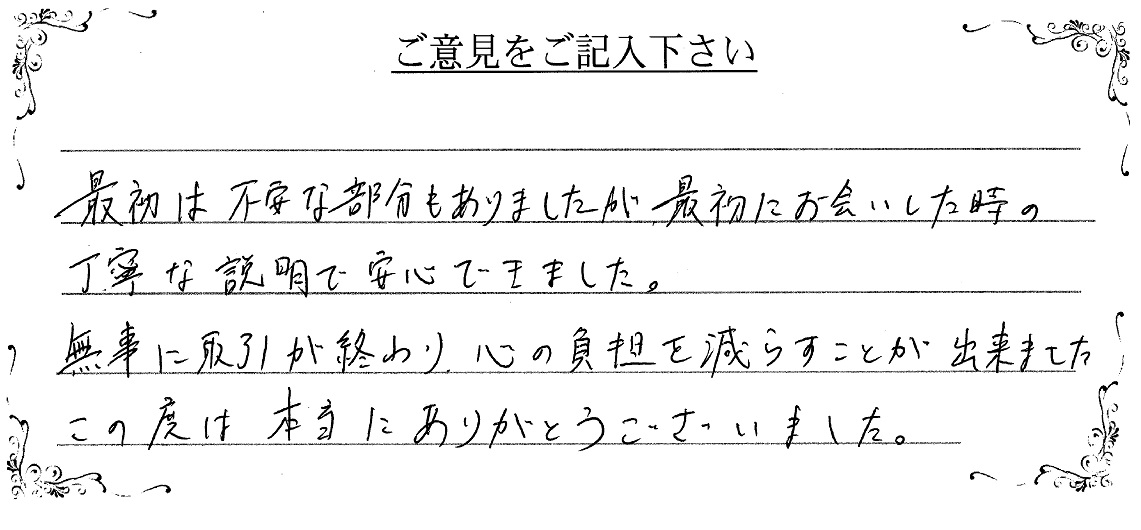 ご意見をご記入下さい
最初は不安な部分もありましたが、最初にお会いした時の
丁寧な説明で安心できました。
無事に取引が終わり、心の負担を減らすことが出来ました
この度は本当にありがとうございました。